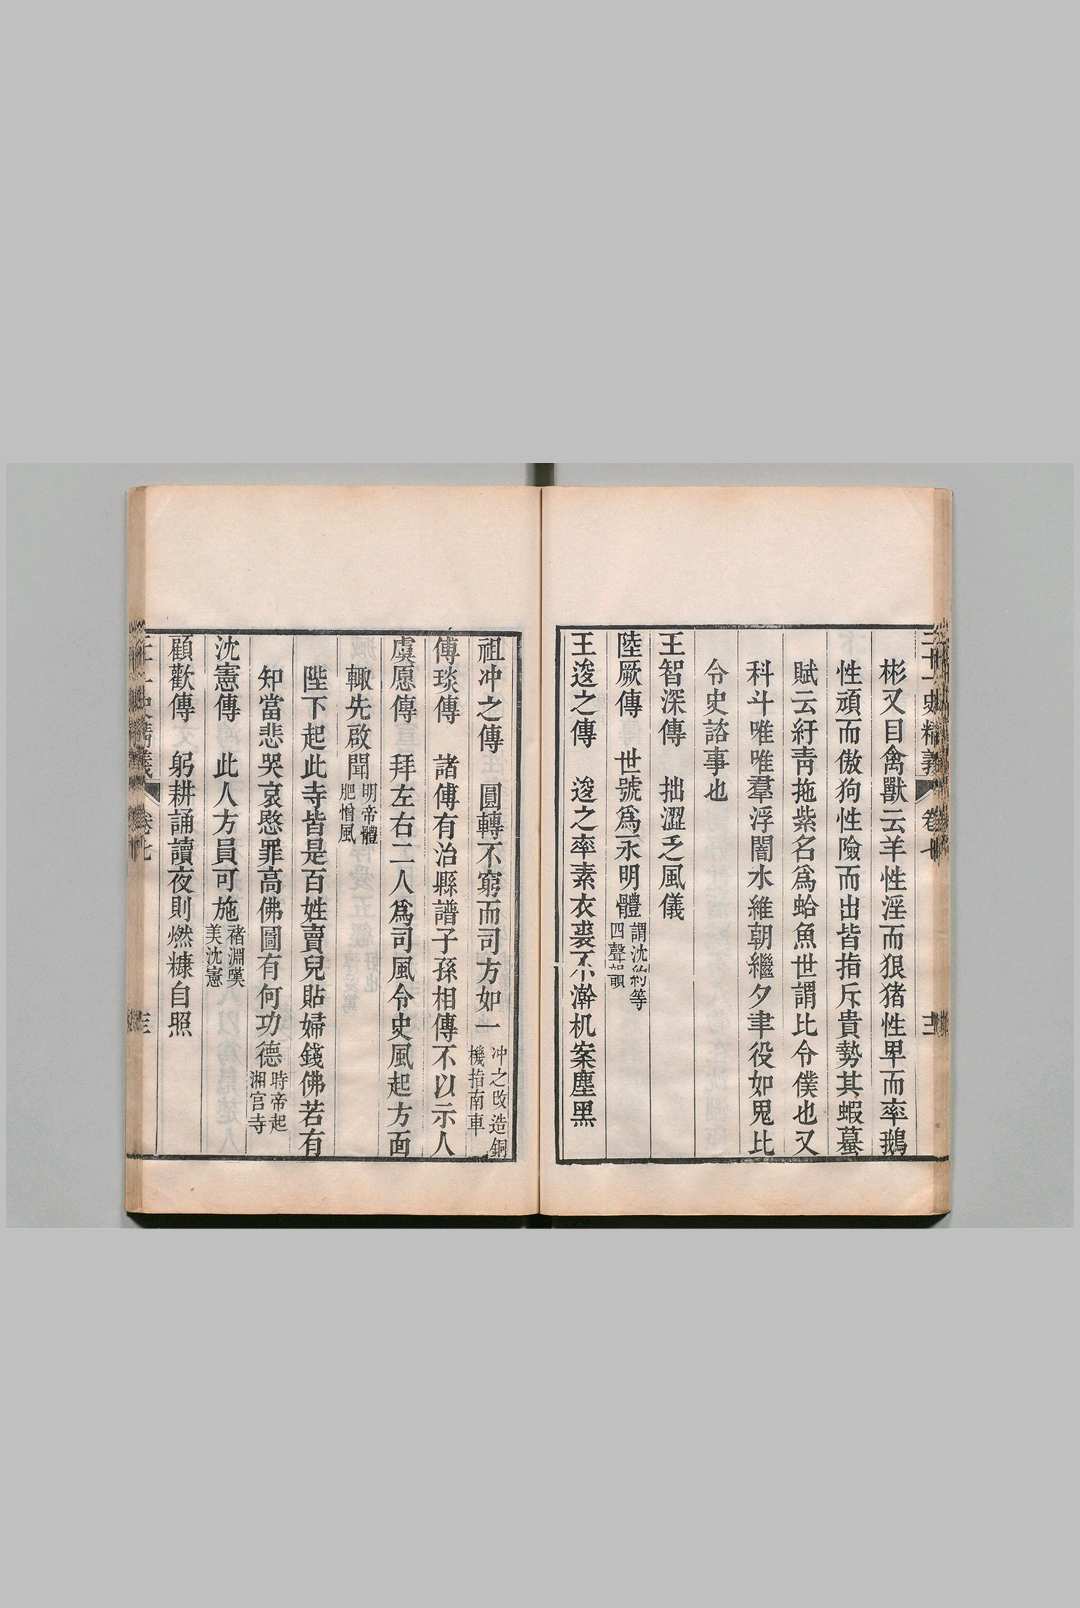 彬又目禽獸云羊性淫而狠猪性卑而率鵝
性頑而傲狗性險而出皆指斥貴勢其蝦蟇
賦云紆靑拖紫名爲蛤魚世謂比令僕也又
科斗唯唯羣浮闇水維朝繼夕聿役如鬼比
令史諮事也
王智深傳　拙澀乏風儀
陸厥傳　世號爲永明體謂沈約等四聲韻
王逡之傳　逡之率素衣裘不澣机案塵黑
祖冲之傳　圓轉不窮而司方如一冲之改造銅機指南車
傅琰傳　諸傅有治縣譜子孫相傳不以示人
虞愿傳　拜左右二人爲司風令史風起方面
輙先啟聞明帝體肥憎風
陛下起此寺皆是百姓賣兒貼婦錢佛若有
知當悲哭哀愍罪高佛圖有何功德時帝起湘宮寺
沈憲傳　此人方員可施褚淵嘆美沈憲
顧歡傳　躬耕誦讀夜則燃糠自照